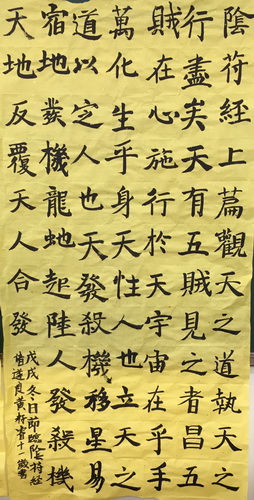 陰符經上篇觀天之道執天之
行盡矣天有五賊見之者昌五
賊在心施行於天宇宙在乎手
萬化生乎身天性人也立天之
道以定人也天發殺機移星易
宿地發機龍虵起陸人發殺機
天地反覆天人合發
戊戌冬日節臨陰符經
道民黃梓宥十一歲書